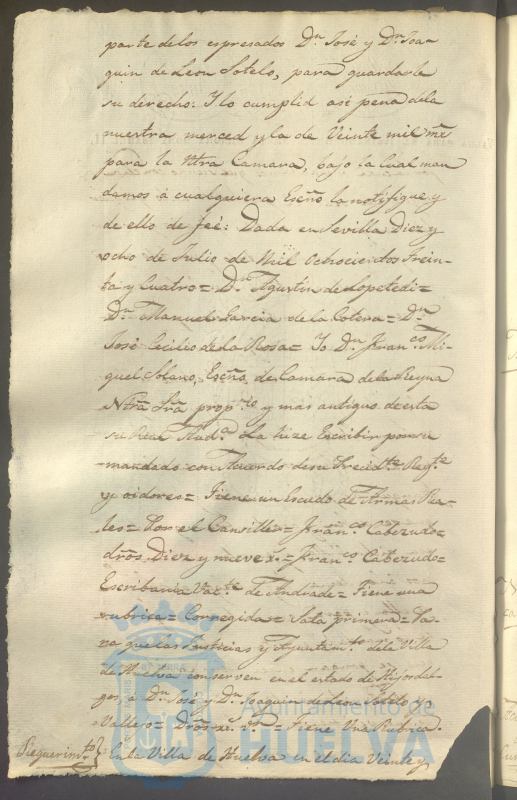 parte de los espresados Dn. José y Dn. Joa-
quin de Leon Sotelo, para guardarle
su derecho: Y lo cumplid asi pena dela
nuestra merced y la de Veinte mil mrs
para la Ntra Camara, bajo la cual man
damos á cualquiera Esño. la notifique y
de ello de feé: Dada en Sevilla Diez y
ocho de Julio de Mil Ochocientos Trein-
ta y Cuatro = Dn. Agustin de Lopetedi =
Dn. Manuel Garcia de la Cotera = Dn.
José Cecilio de la Rosa = Yo Dn. Franco. Mi-
guel Solano, Esño. de Camara de la Reyna
Ntra Sra. propio. y mas antiguo de esta
su Real Auda. La hize Escribir por su
mandado con Acuerdo de su Regte.
y oidores = Tiene un Escudo de Armas Rea-
les = Por el Canciller = Franco. Cabezudo =
dros. Diez y nueve r. = Franco. Cabezudo =
Escribania de Andrade = Tiene una
rubrica = Corregida = Sala primera = Pa-
ra que las Justicias y Ayuntamto. dela Villa
de Huelva conserven en el estado de Hijosdal-
gos á Dn. José y Dn. Joaquin de Leon Sotelo y
Vallejo = = Tiene Una Rubrica.
Requerimto. } En la Villa de Huelva en el dia Veinte y
Ayuntamiento de
HUELVA